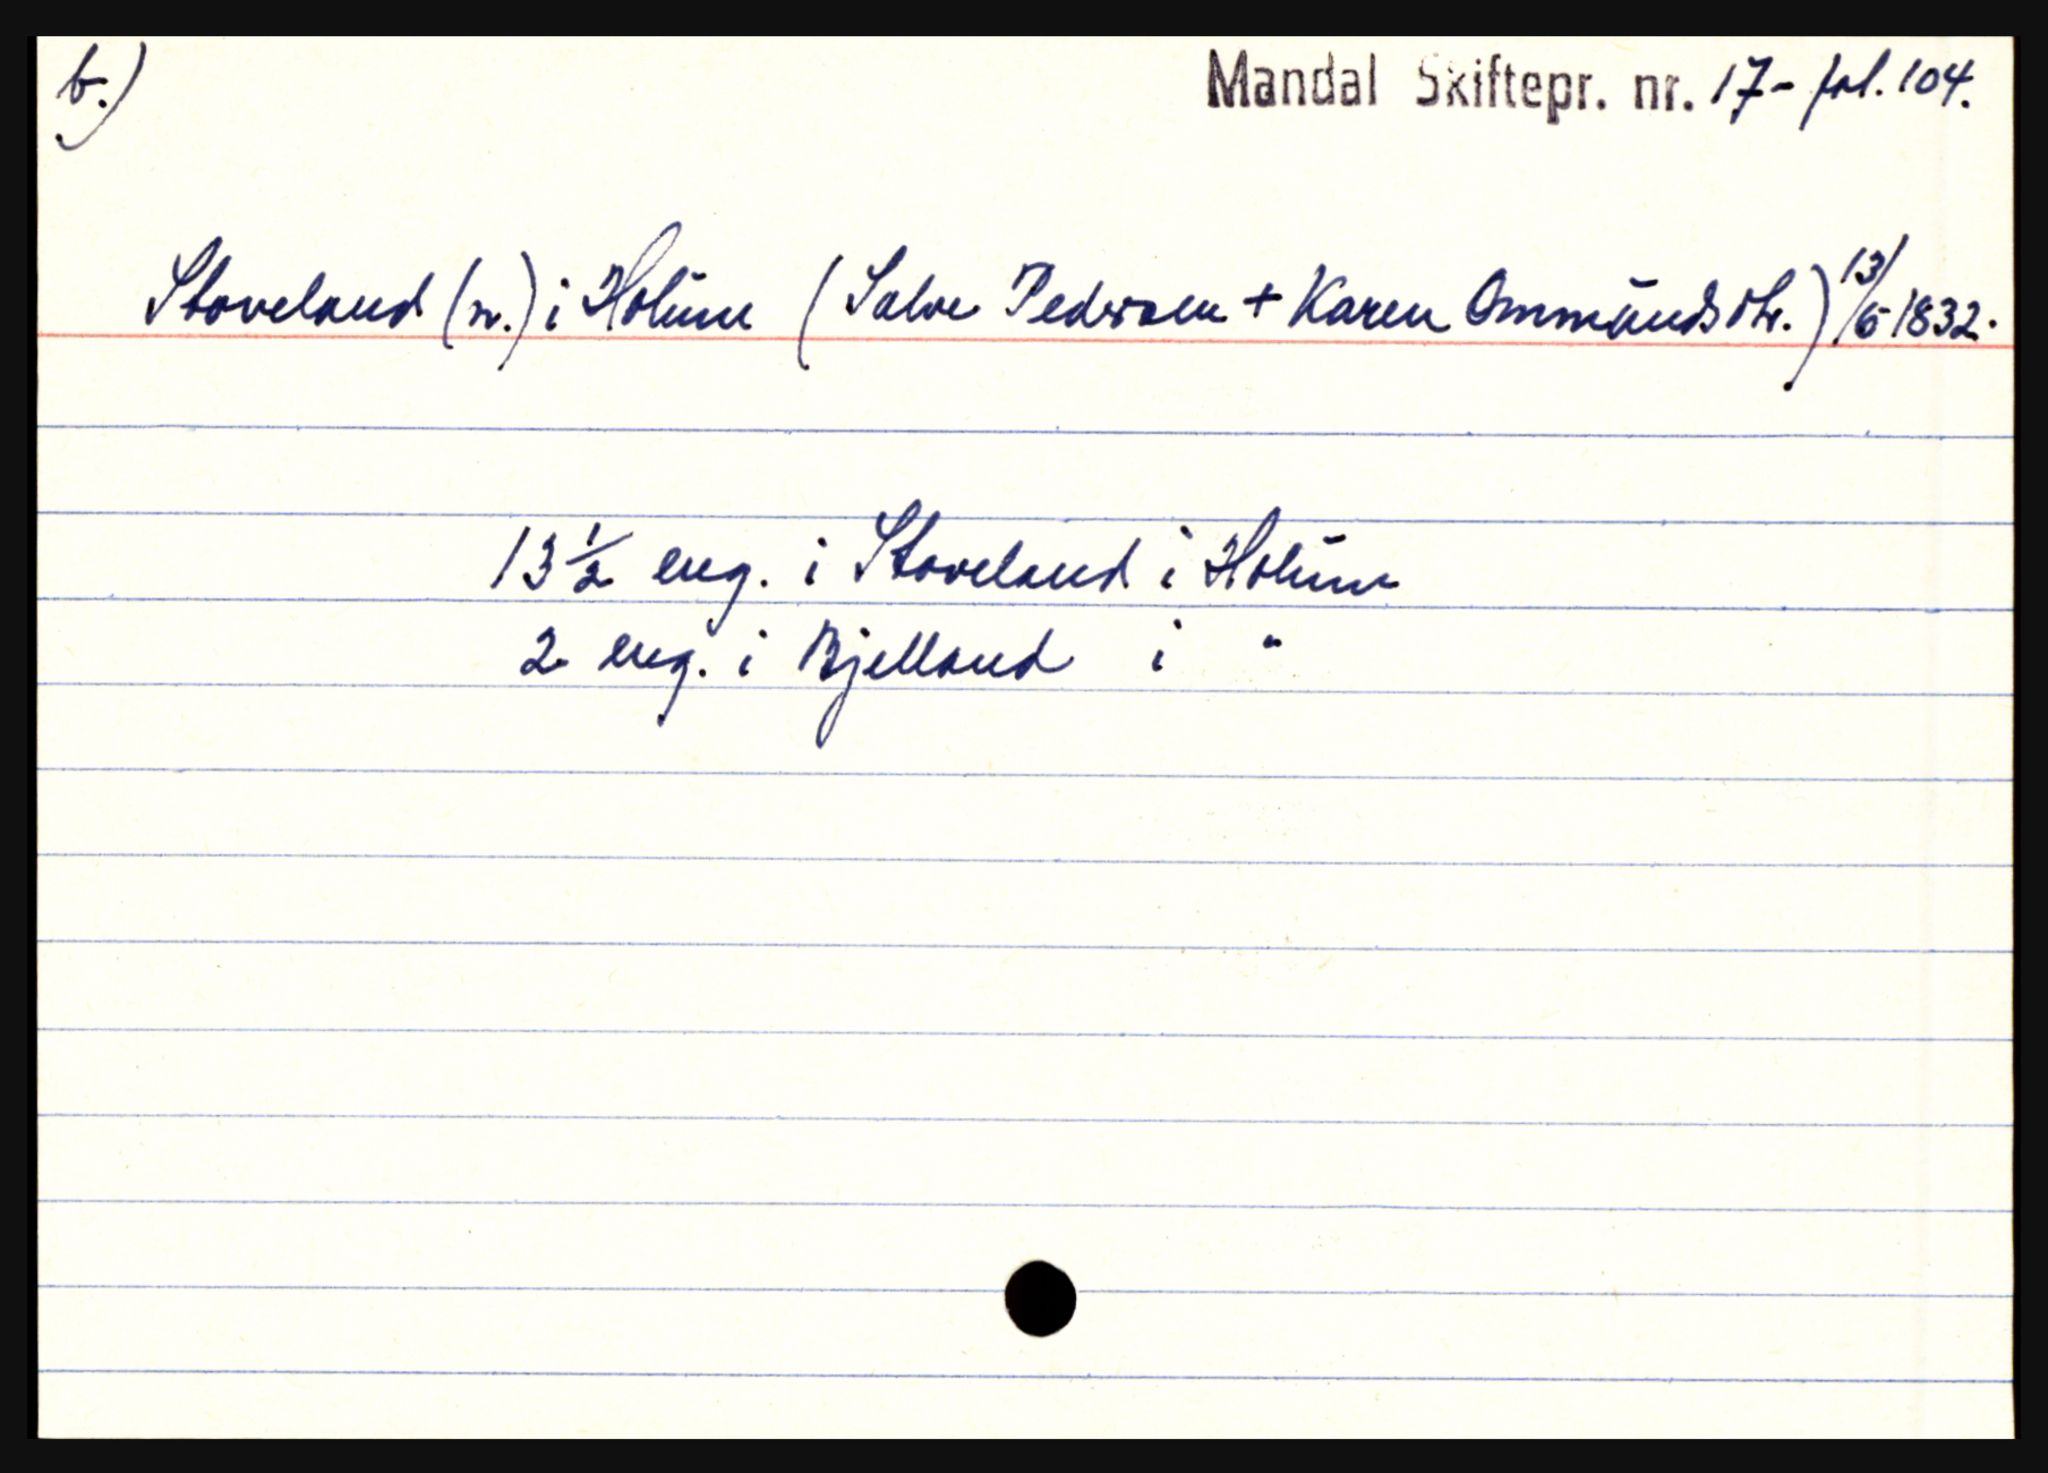 b.)
Mandal Skiftepr. nr. 17 - fol. 104.
Stoveland (n.) i Holum (Salve Pedersen + Karen Ommundsdtr.) 13/5 1832.
13 ½ eng. i Stoveland i Holum
2 eng. i Bjelland i "